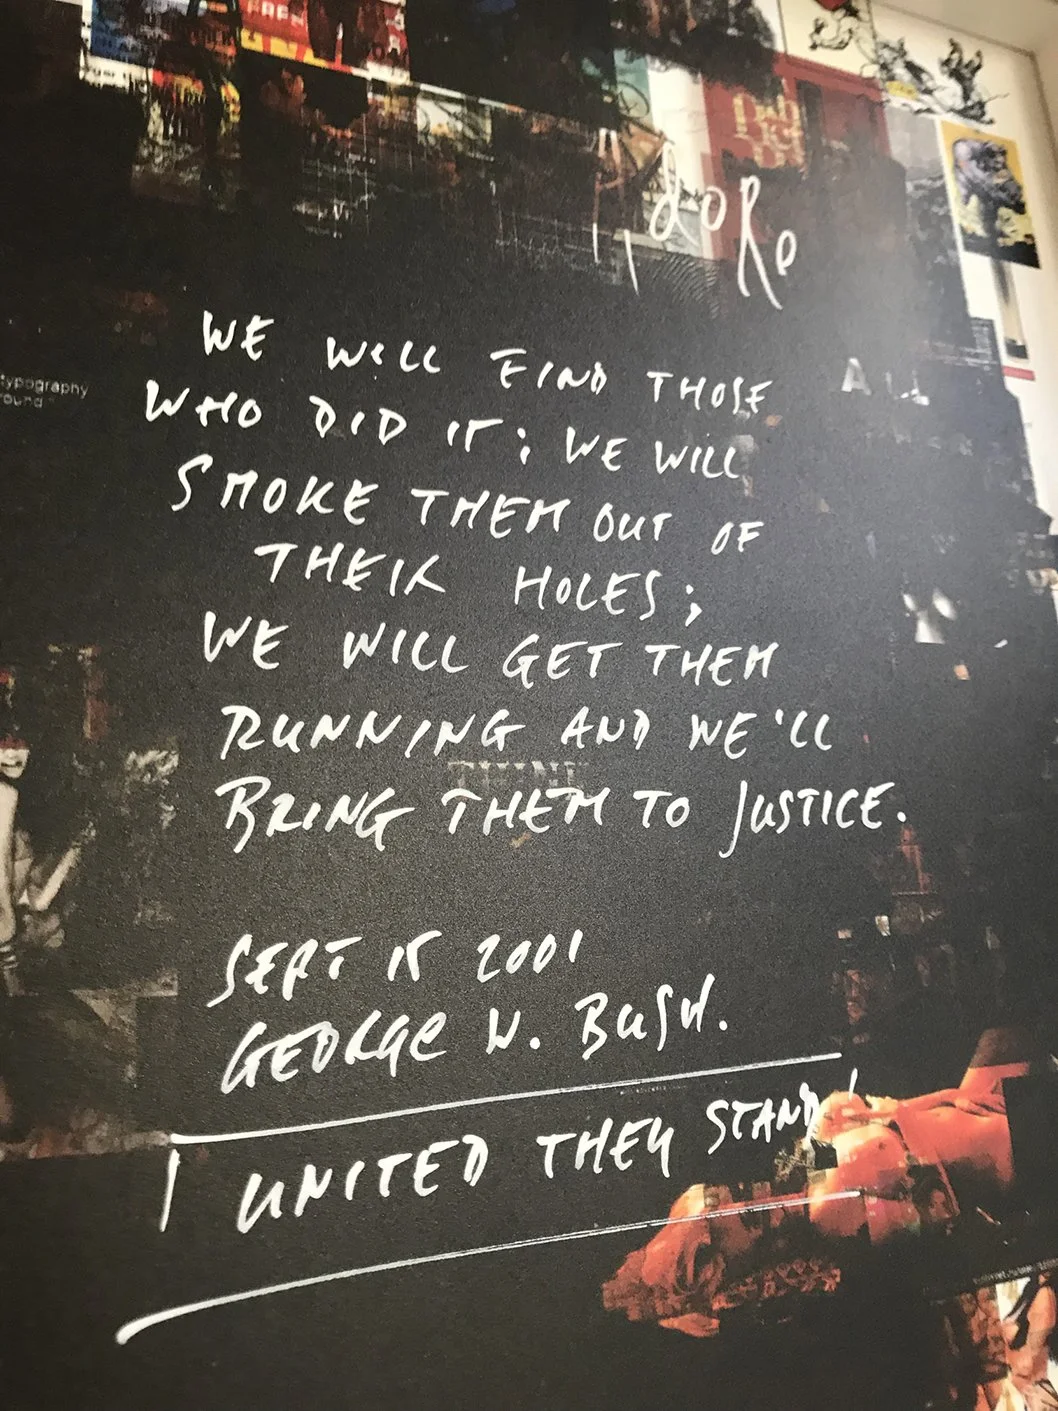 FREE
doRe
typography
WE WILL FIND THOSE
WHO DID IT; WE WILL
SMOKE THEM OUT OF
THEIR HOLES;
WE WILL GET THEM
RUNNING AND WE'LL
BRING THEM TO JUSTICE.
SEPT 15 2001
GEORGE W. BUSH.
UNITED THEY STAND